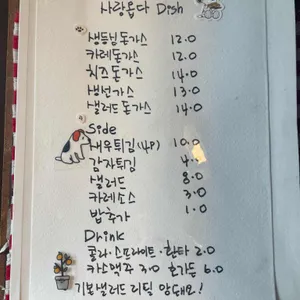 사랑옵다 Dish
생등심돈가스 12.0
카레돈가스 12.0
치즈돈가스 14.0
생선가스 13.0
샐러드돈가스 14.0
Side
새우튀김(4P) 10.0
감자튀김 4.
샐러드 8.0
카레소스 3.0
밥추가 1.0
Drink
콜라·스프라이트·환타 2.0
카스맥주 3.0 호가든 6.0
기본샐러드 리필 안돼요!